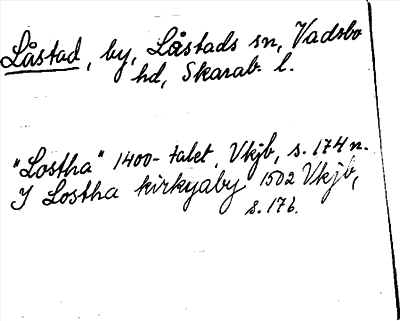 Låstad, by, Låstads sn, Vadsbo
hd, Skarab. l.
"Lostha" 1400-talet, Vkjb, s. 174 n.
I Lostha kirkyaby 1502 Vkjb,
s. 176.